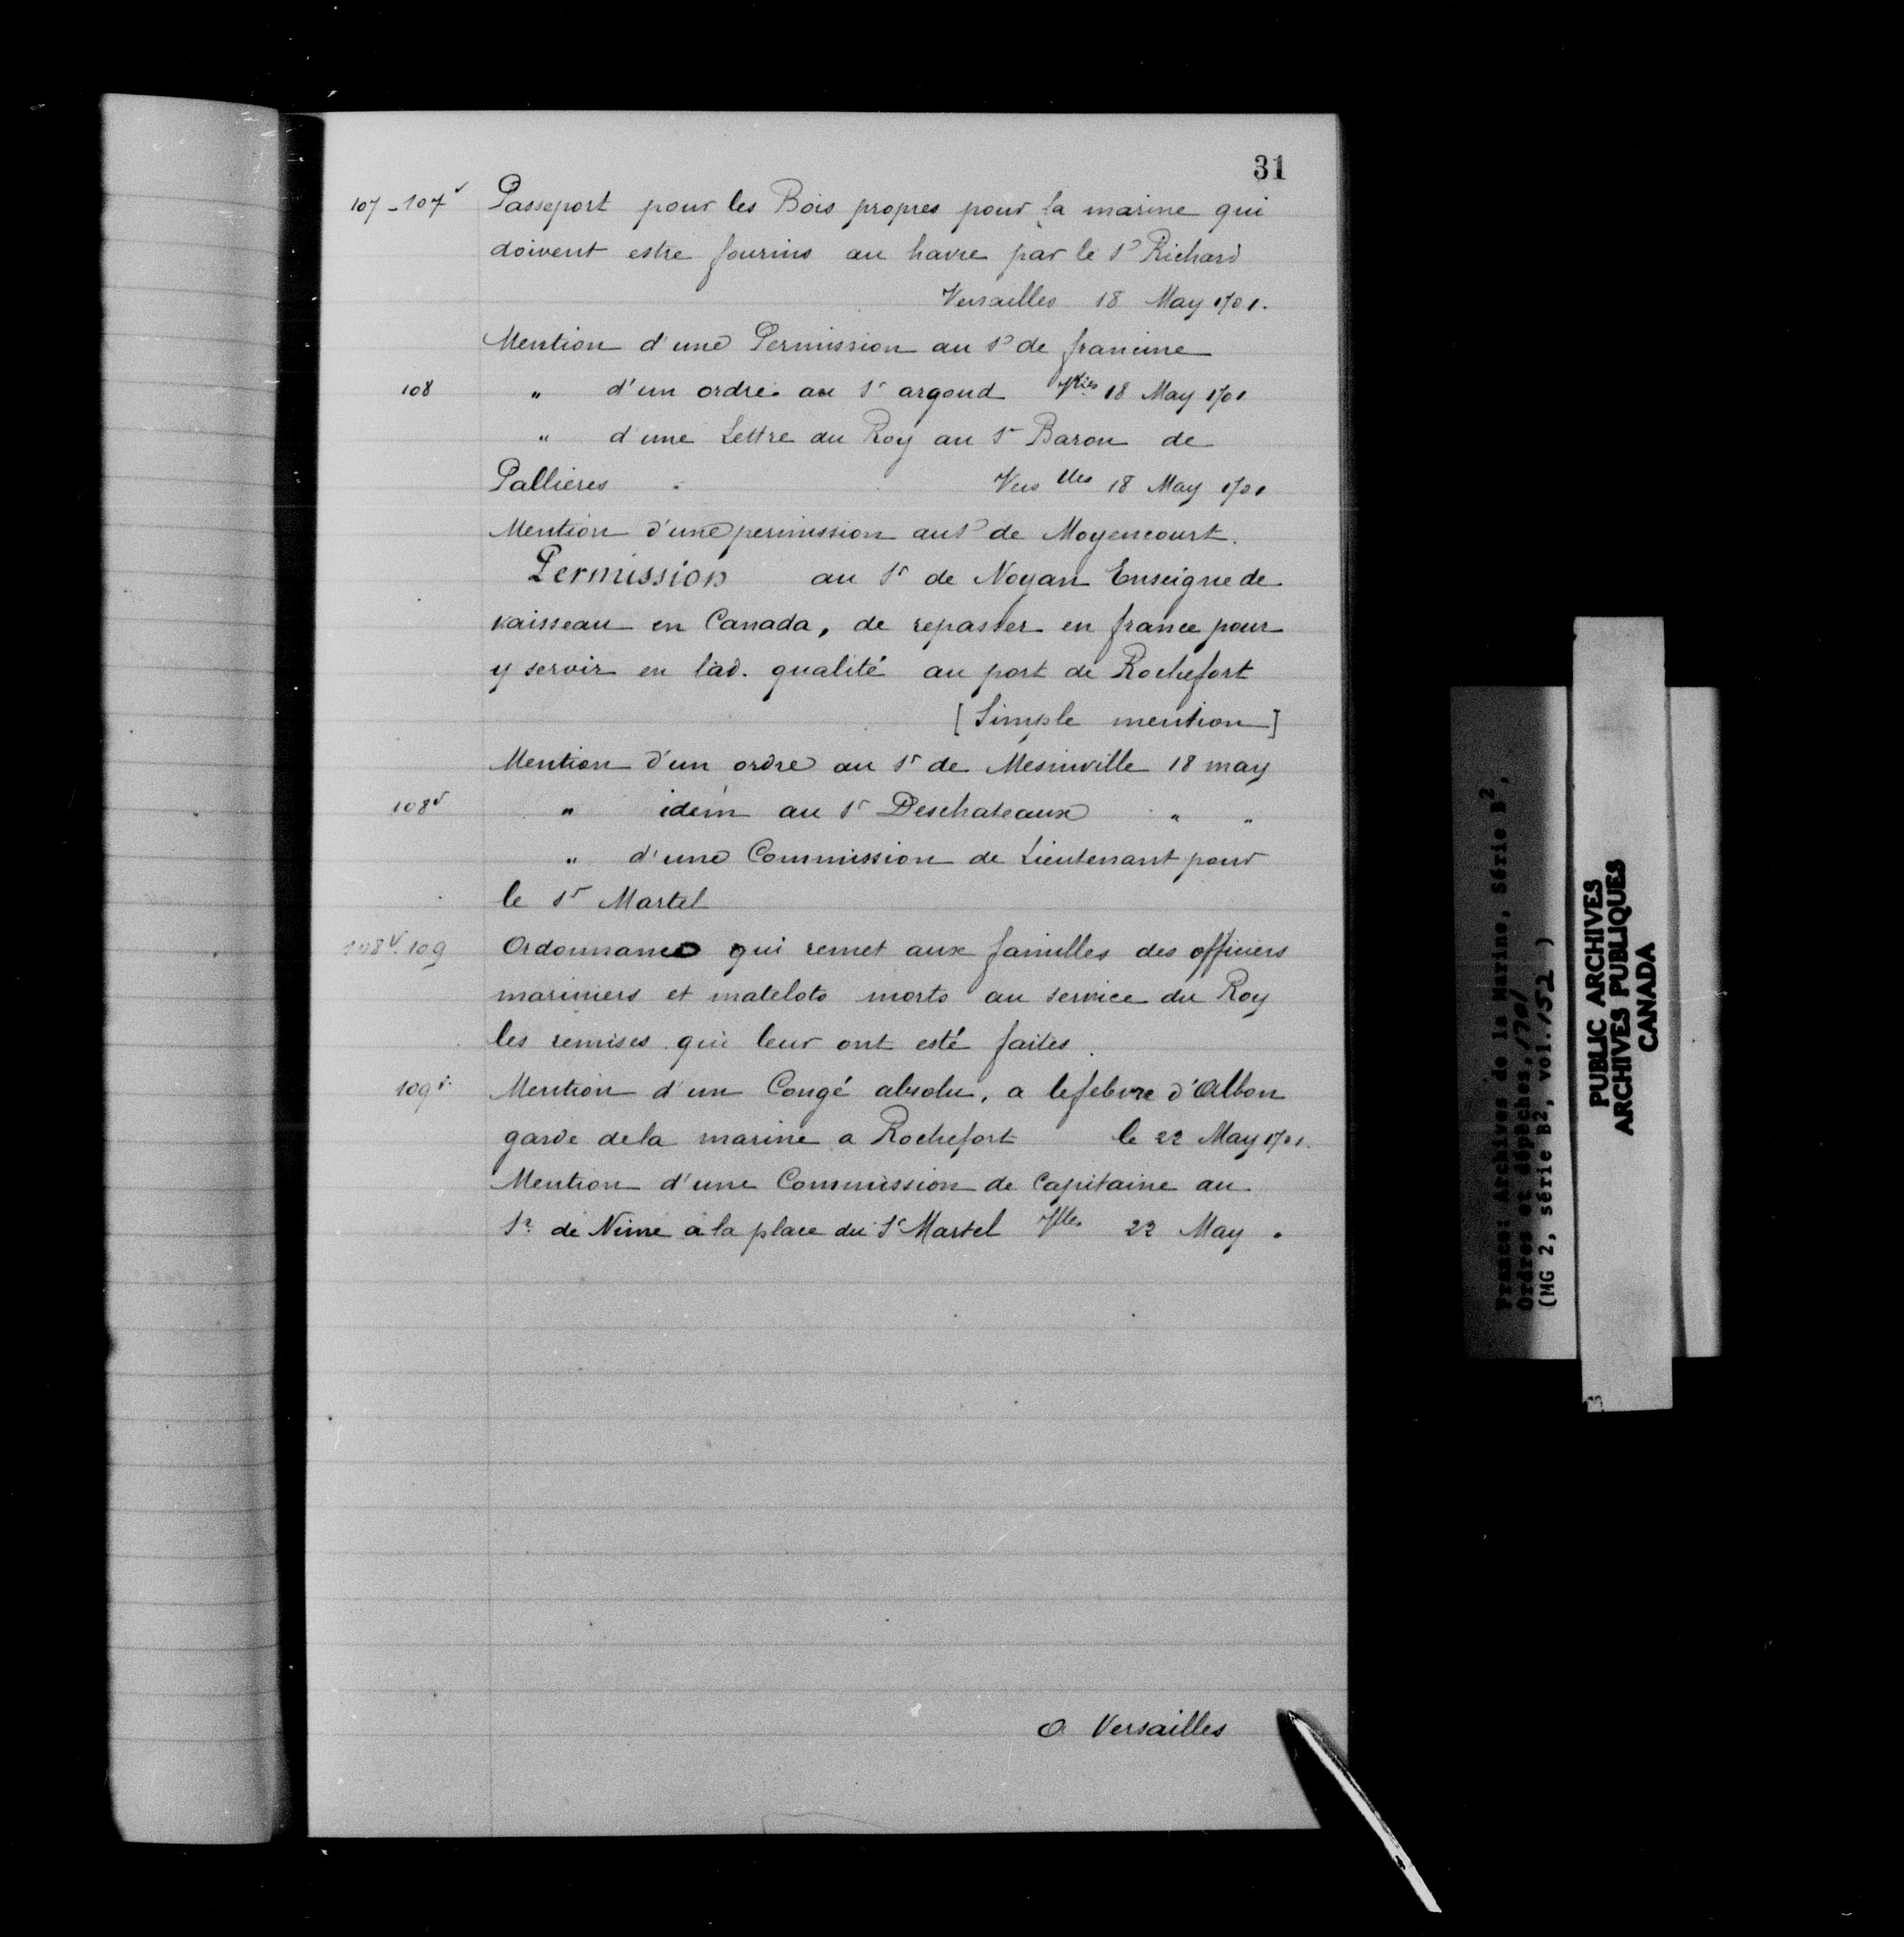 31
107-107v Passeport pour les Bois propres pour la marine qui
doivent estre fournis au havre par le Sr Richard
Versailles 18 May 1701.
Mention d'une Permission au Sr de francine
108 " d'un ordre au Sr argoud Vlles 18 May 1701
" d'une Lettre du Roy au Sr Baron de
Pallieres Vers lles 18 May 1701
Mention d'une permission au Sr de Moyencourt.
Permission au Sr de Noyan Enseigne de
vaisseau en Canada, de repasser en france pour
y servir en lad. qualité au port de Rochefort
[Simple mention]
Mention d'un ordre au Sr de Mesinville 18 may
108v " idem au Sr Deschateaux " "
" d'une Commission de Lieutenant pour
le Sr Martel
108v.109 Ordonnance qui remet aux familles des officiers
mariniers et matelots morts au service du Roy
les remises qui leur ont esté faites.
109v. Mention d'un Congé absolu, a lefebvre d'Albon
garde de la marine a Rochefort le 22 May 1701.
Mention d'une Commission de Capitaine au
Sr. de Nime à la place du Sr Martel Vlles 22 May.
a Versailles
France: Archives de la Marine, Série B2,
Ordres et dépêches, 1701
(MG 2, série B2, vol. 152)
PUBLIC ARCHIVES
ARCHIVES PUBLIQUES
CANADA